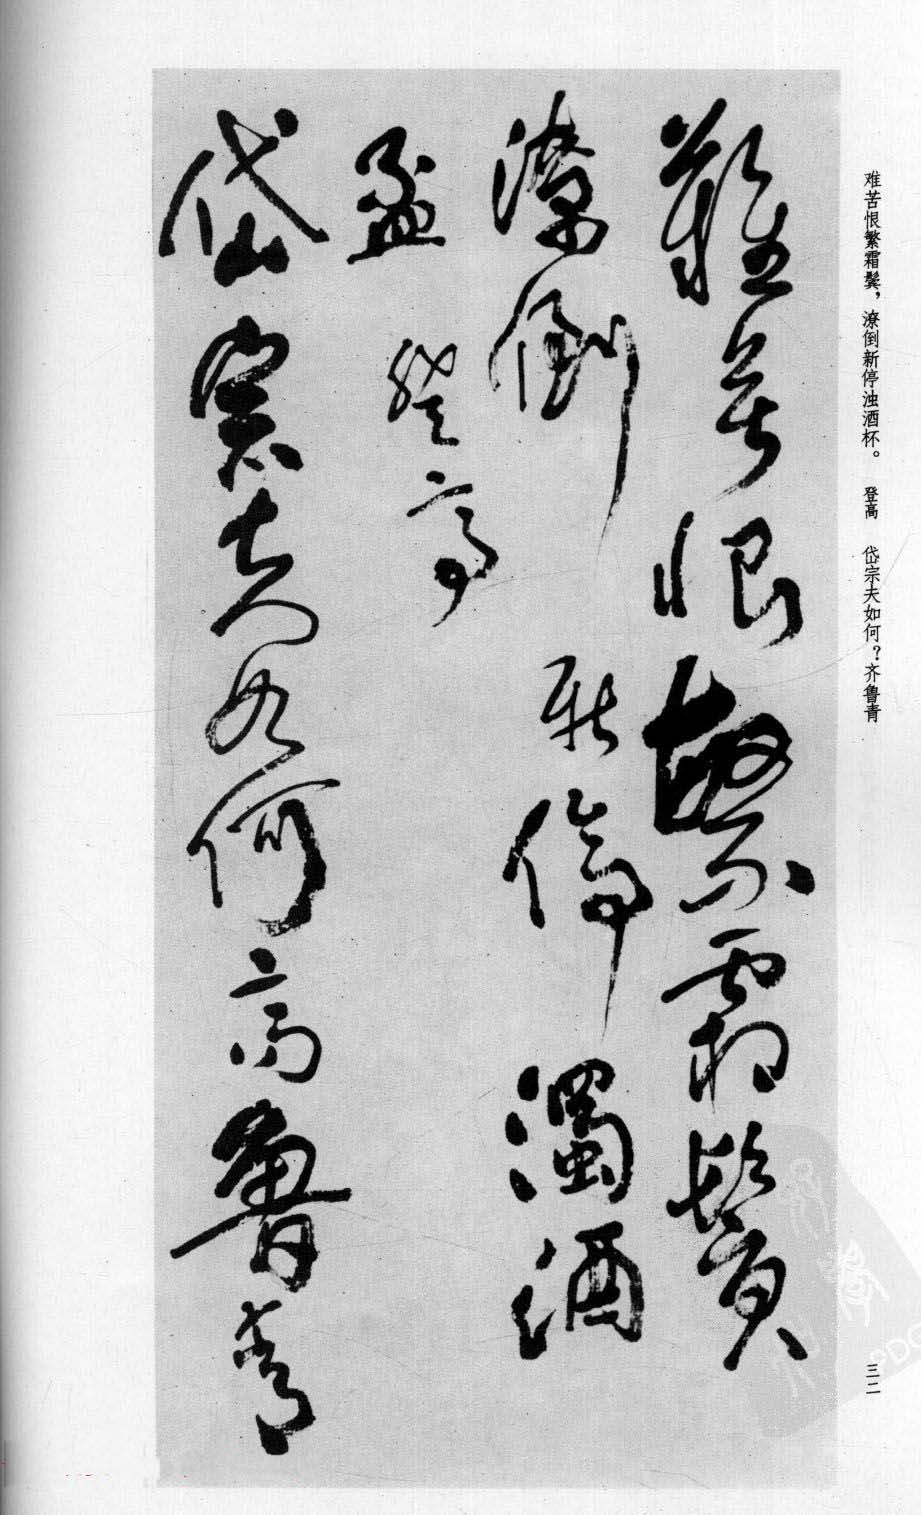 难苦恨繁霜鬓，潦倒新停浊酒杯。　登高　岱宗夫如何？齐鲁青
難苦恨繁霜鬢
潦倒新停濁酒
盃　登高
岱宗夫如何齊魯青
三二